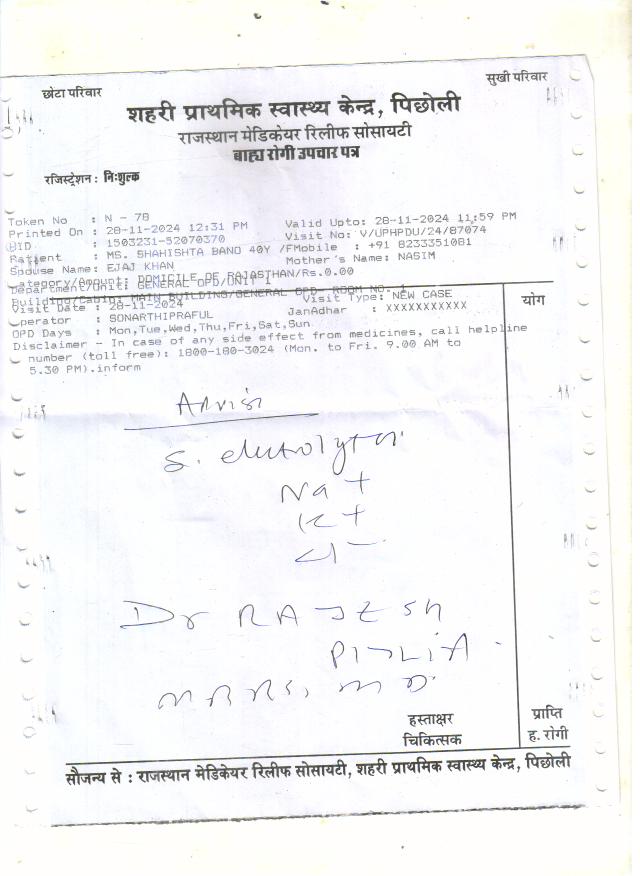 छोटा परिवार
सुखी परिवार
शहरी प्राथमिक स्वास्थ्य केन्द्र, पिछोली
राजस्थान मेडिकेयर रिलीफ सोसायटी
बाह्य रोगी उपचार पत्र
रजिस्ट्रेशन : निःशुल्क
Token No : N - 78
Valid Upto: 28-11-2024 11:59 PM
Printed On : 28-11-2024 12:31 PM
Visit No: V/UPHPDU/24/87074
UID : 1503231-52070370
Patient : MS. SHAHISHTA BANO 40Y /F Mobile : +91 8233351081
Spouse Name: EJAJ KHAN Mother's Name: NASIM
Category/Amount: DOMICILE OF RAJASTHAN/Rs.0.00
Department/Unit: GENERAL OPD/UNIT 1
Building/Cabin: MAIN BUILDING/GENERAL OPD ROOM NO. 1
Visit Date : 28-11-2024 Visit Type: NEW CASE
Operator : SONARTHIPRAFUL JanAdhar : XXXXXXXXXXX
OPD Days : Mon,Tue,Wed,Thu,Fri,Sat,Sun
Disclaimer - In case of any side effect from medicines, call helpline
number (toll free): 1800-180-3024 (Mon. to Fri. 9.00 AM to
5.30 PM).inform
योग
S. electrolytes
Na +
K +
Cl -
Dr RAJESH
MBBS, MD
हस्ताक्षर
चिकित्सक
प्राप्ति
ह. रोगी
सौजन्य से : राजस्थान मेडिकेयर रिलीफ सोसायटी, शहरी प्राथमिक स्वास्थ्य केन्द्र, पिछोली